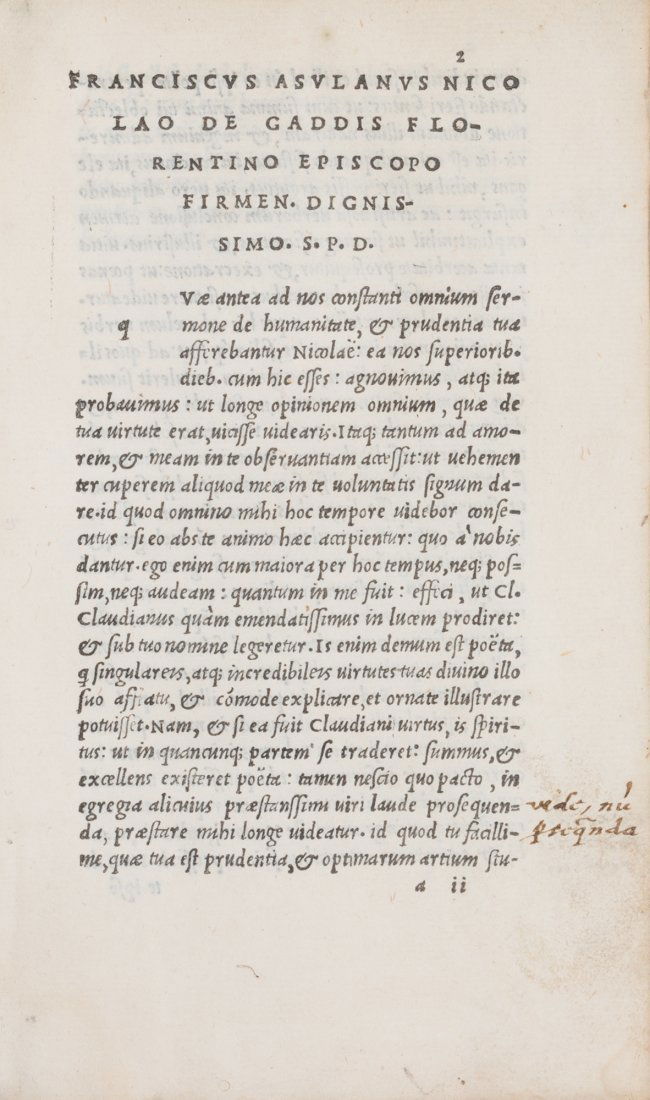 2
FRANCISCVS ASVLANVS NICO
LAO DE GADDIS FLO-
RENTINO EPISCOPO
FIRMEN. DIGNIS-
SIMO. S. P. D.
q Væ antea ad nos constanti omnium ser-
mone de humanitate, & prudentia tua
afferebantur Nicolaë: ea nos superiorib.
dieb. cum hic esses: agnouimus, atq; ita
probauimus: ut longe opinionem omnium, quæ de
tua uirtute erat, uicisse uidearis. Itaq; tantum ad amo-
rem, & meam in te obseruantiam accessit: ut uehemen
ter cuperem aliquod meæ in te uoluntatis signum da-
re. id quod omnino mihi hoc tempore uidebor conse-
cutus: si eo abs te animo hæc accipientur: quo à nobis
dantur. ego enim cum maiora per hoc tempus, neq; pos=
sim, neq; audeam: quantum in me fuit: effeci, ut Cl.
Claudianus quàm emendatissimus in lucem prodiret:
& sub tuo nomine legeretur. Is enim demum est poëta,
q singulareis, atq; incredibileis uirtutes tuas diuino illo
suo afflatu, & cōmode explicare, et ornate illustrare
potuisset. Nam, & si ea fuit Claudiani uirtus, is spiri-
tus: ut in quancunq; partem se traderet: summus, &
excellens existeret poëta: tamen nescio quo pacto, in
egregia alicuius præstanssimi uiri laude prosequen=
da, præstare mihi longe uideatur. id quod tu facilli-
me, quæ tua est prudentia, & optimarum artium stu-
a ii